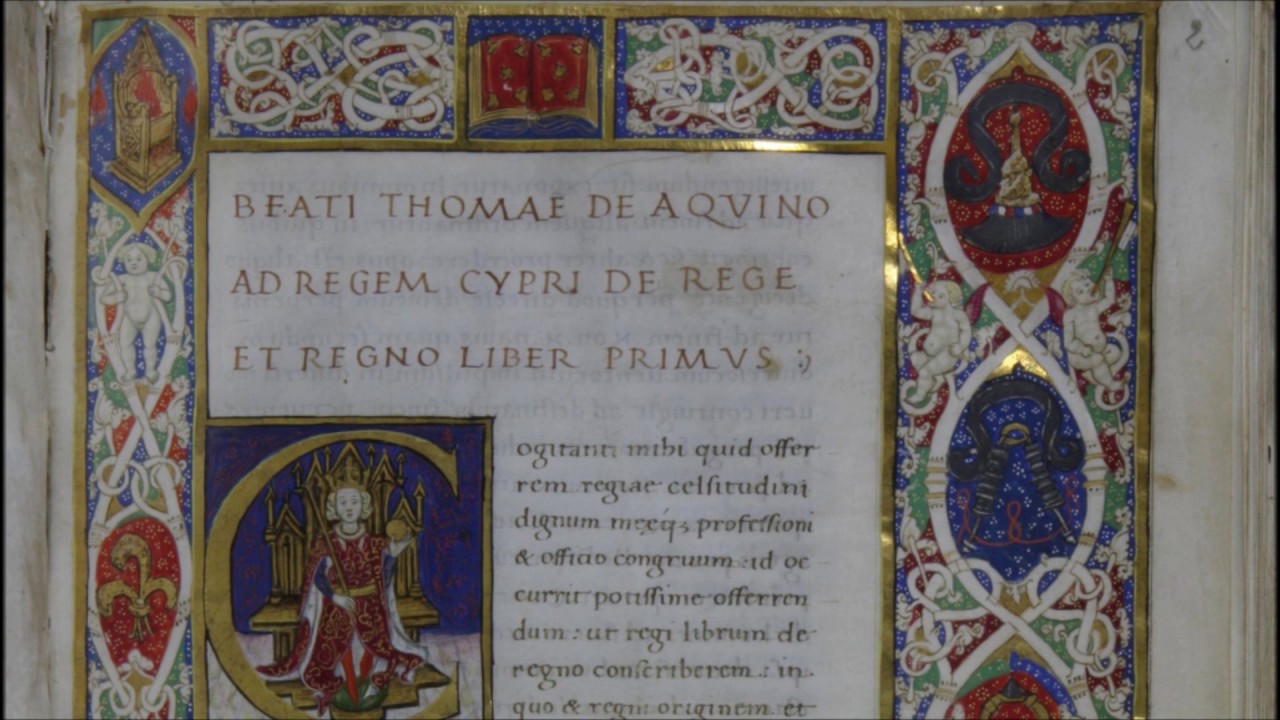 2
BEATI THOMAE DE AQVINO
AD REGEM CYPRI DE REGE
ET REGNO LIBER PRIMVS :,
Cogitanti mihi quid offer
rem regiae celsitudini
dignum meæq; professioni
& officio congruum : id oc
currit potissime offerren
dum : ut regi librum de
regno conscriberem : in
quo & regni originem et